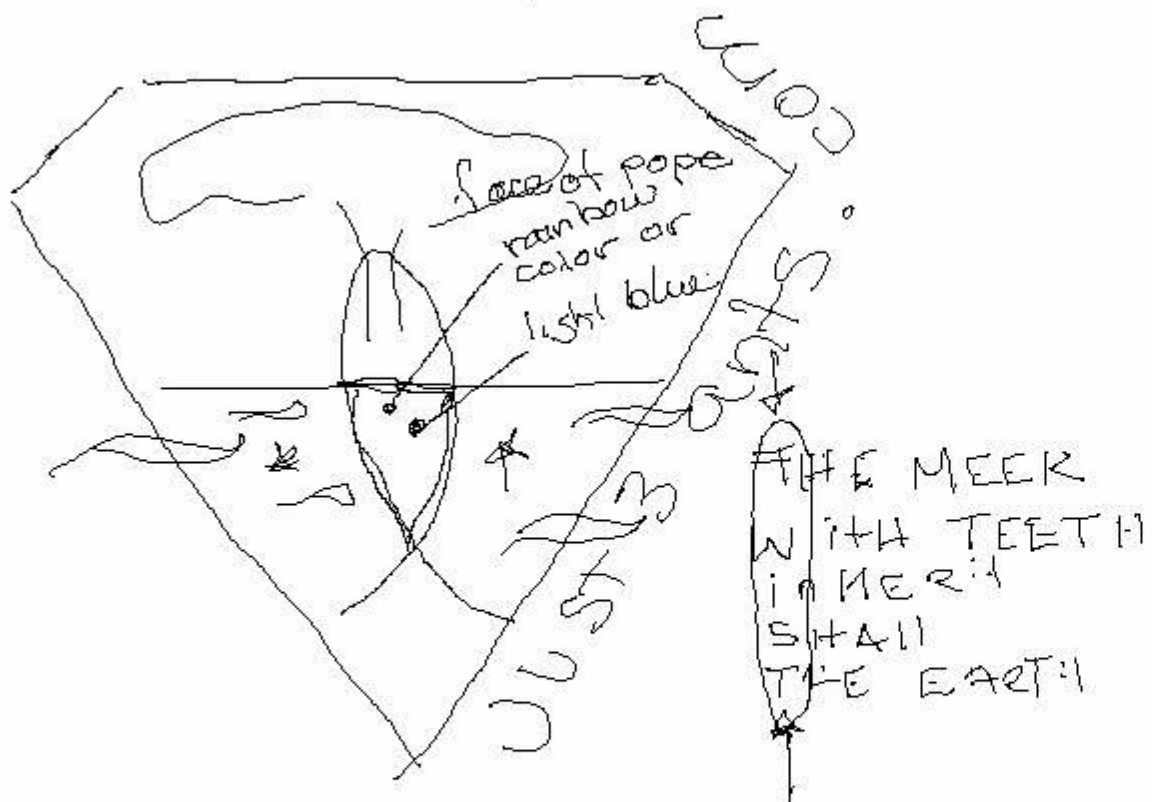 face of pope
rainbow
color or
light blue
JUST 3
.com
THE MEEK
WiTH TEETH
inHERiT
SHAll
THE EARTH